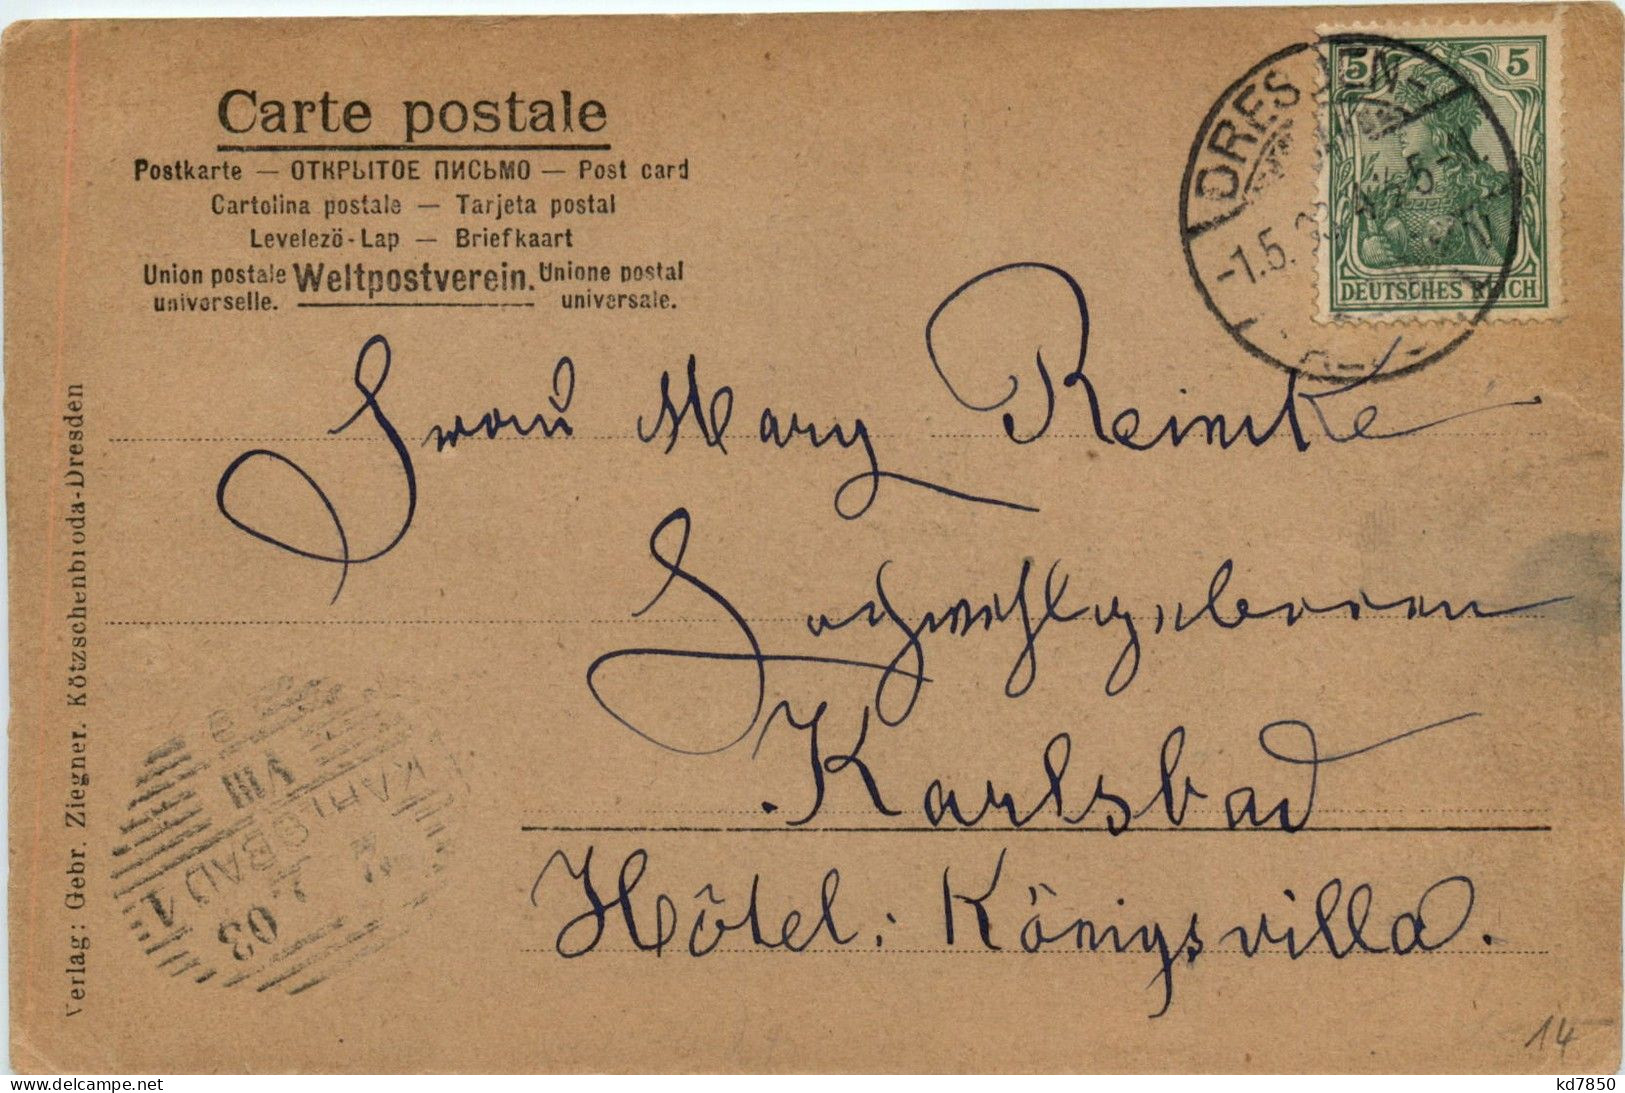 Carte postale
Postkarte — ОТКРЫТОЕ ПИСЬМО — Post card
Cartolina postale — Tarjeta postal
Levelező-Lap — Briefkaart
Union postale universelle. Weltpostverein. Unione postal universale.
5 5
DEUTSCHES REICH
DRESDEN-
-1.5.
Frau Mary Reincke
Hochwohlgeboren
Karlsbad
Hôtel: Königsvilla.
KARLSBAD 1
VIII
03
Verlag: Gebr. Ziegner. Kötzschenbroda-Dresden
14
kd7850